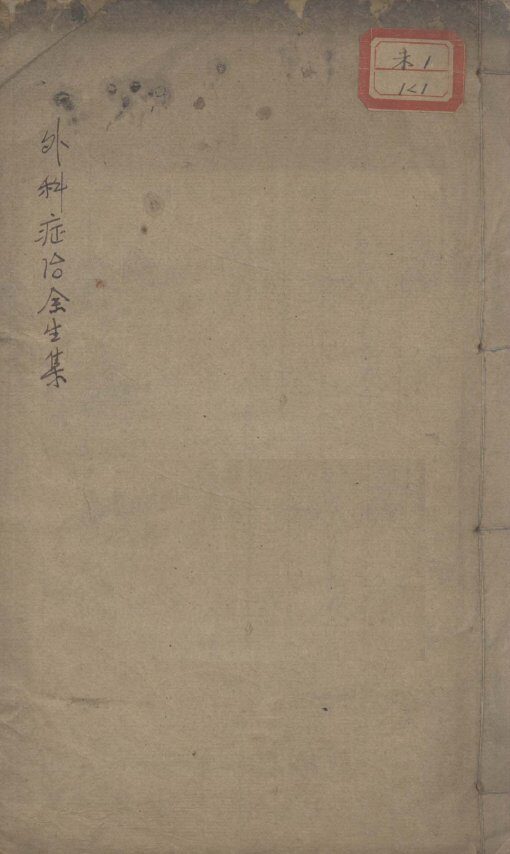 外科症治全生集
未1
121